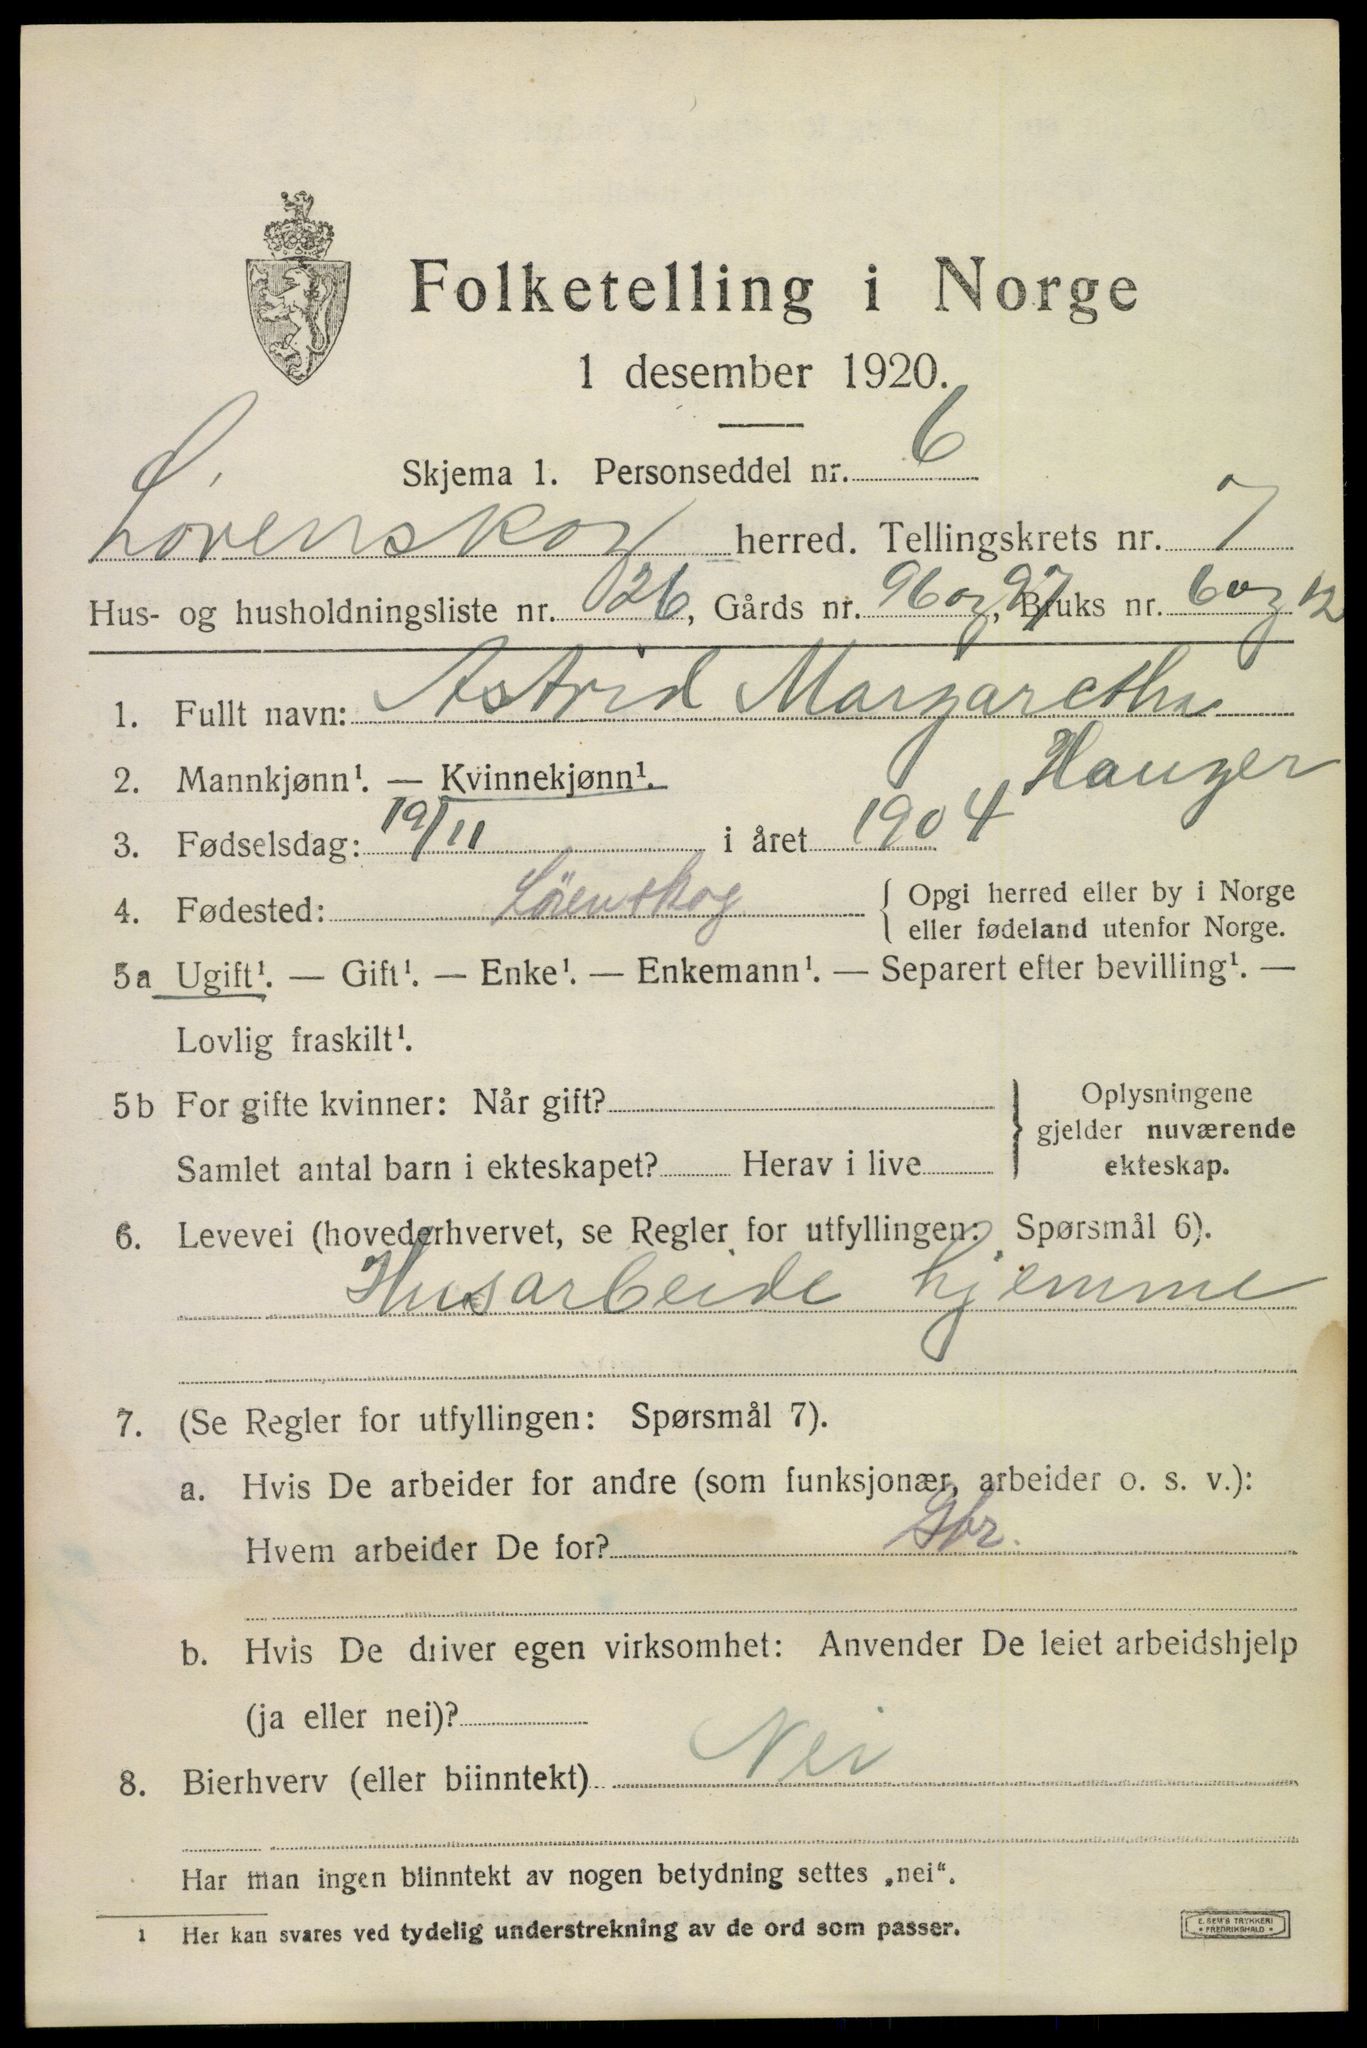 Folketelling i Norge
1 desember 1920.
Skjema 1. Personseddel nr. 6
Lövenskog herred. Tellingskrets nr. 7
Hus- og husholdningsliste nr. 26, Gårds nr. 96 og 97, Bruks nr. 6 og 12
1. Fullt navn: Astrid Margaretha
Hauger
2. Mannkjønn¹. — Kvinnekjønn¹.
3. Fødselsdag: 19/11 i året 1904
4. Fødested: Löienskog { Opgi herred eller by i Norge
eller fødeland utenfor Norge.
5a Ugift¹. — Gift¹. — Enke¹. — Enkemann¹. — Separert efter bevilling¹. —
Lovlig fraskilt¹.
5b For gifte kvinner: Når gift? } Oplysningene
gjelder nuværende
Samlet antal barn i ekteskapet? Herav i live ekteskap.
6. Levevei (hovederhvervet, se Regler for utfyllingen: Spørsmål 6).
Husarbeide hjemme
7. (Se Regler for utfyllingen: Spørsmål 7).
a. Hvis De arbeider for andre (som funksjonær, arbeider o. s. v.):
Hvem arbeider De for? Gbr.
b. Hvis De driver egen virksomhet: Anvender De leiet arbeidshjelp
(ja eller nei)?
8. Bierhverv (eller biinntekt) Nei
Har man ingen biinntekt av nogen betydning settes „nei“.
1 Her kan svares ved tydelig understrekning av de ord som passer.
E. SEM'S TRYKKERI
• FREDRIKSHALD •